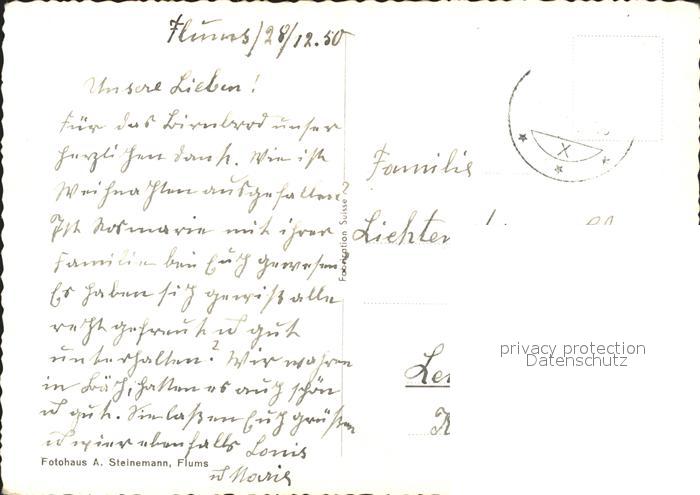 Flums, 28/12.50
Unsere Lieben!
Für das Birnbrod unser
herzlichen Dank. Wie ist
Weihnachten ausgefallen?
Ist Rosmarie mit ihrer
Familie bei Euch gewesen.
Es haben sich gewiß alle
recht gefreut u gut
unterhalten? Wir wahren
in Bäch, hatten es auch schön
u gut. Sie laßen Euch grüßen
u wier ebenfalls Louis
u Marie
Fotohaus A. Steinemann, Flums
Fabrication Suisse
X
Familie
Lichten
privacy protection
Datenschutz